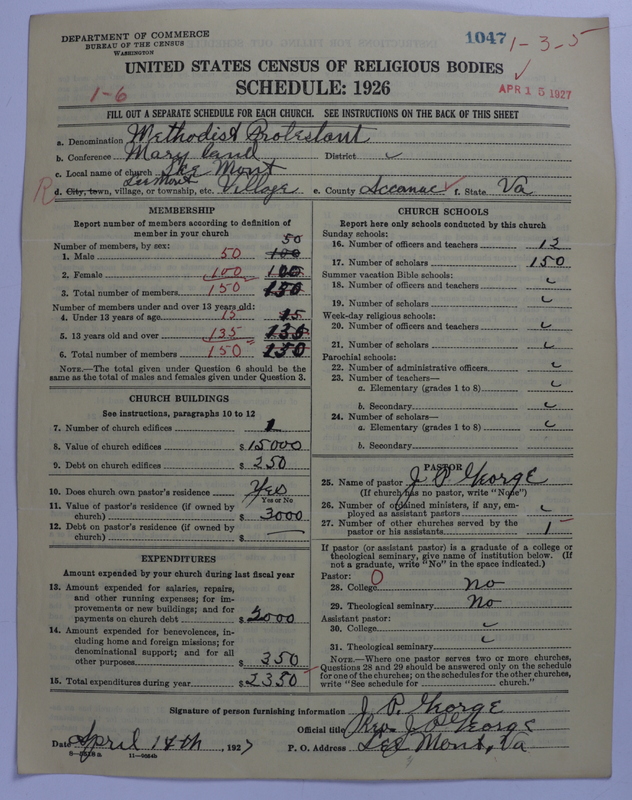 DEPARTMENT OF COMMERCE
BUREAU OF THE CENSUS
WASHINGTON
1047 1-3-5
UNITED STATES CENSUS OF RELIGIOUS BODIES
SCHEDULE: 1926
1-6
APR 15 1927
FILL OUT A SEPARATE SCHEDULE FOR EACH CHURCH. SEE INSTRUCTIONS ON THE BACK OF THIS SHEET
a. Denomination Methodist Protestant
b. Conference Maryland District
c. Local name of church Mont
R d. City, town, village, or township, etc. Village e. County Accomac f. State Va
MEMBERSHIP
Report number of members according to definition of member in your church
Number of members, by sex:
50
1. Male 50 100
2. Female 100 100
3. Total number of members 150 150
Number of members under and over 13 years old:
4. Under 13 years of age 15 15
5. 13 years old and over 135 135
6. Total number of members 150 150
NOTE.—The total given under Question 6 should be the same as the total of males and females given under Question 3.
CHURCH BUILDINGS
See instructions, paragraphs 10 to 12
7. Number of church edifices 1
8. Value of church edifices $ 15000
9. Debt on church edifices $ 250
10. Does church own pastor's residence Yes
Yes or No
11. Value of pastor's residence (if owned by church) $ 3000
12. Debt on pastor's residence (if owned by church) $
EXPENDITURES
Amount expended by your church during last fiscal year
13. Amount expended for salaries, repairs, and other running expenses; for improvements or new buildings; and for payments on church debt $ 2000
14. Amount expended for benevolences, including home and foreign missions; for denominational support; and for all other purposes $ 350
15. Total expenditures during year $ 2350
CHURCH SCHOOLS
Report here only schools conducted by this church
Sunday schools:
16. Number of officers and teachers 12
17. Number of scholars 150
Summer vacation Bible schools:
18. Number of officers and teachers
19. Number of scholars
Week-day religious schools:
20. Number of officers and teachers
21. Number of scholars
Parochial schools:
22. Number of administrative officers
23. Number of teachers—
a. Elementary (grades 1 to 8)
b. Secondary
24. Number of scholars—
a. Elementary (grades 1 to 8)
b. Secondary
PASTOR
25. Name of pastor J P George
(If church has no pastor, write "None")
26. Number of ordained ministers, if any, employed as assistant pastors
27. Number of other churches served by the pastor or his assistants 1
If pastor (or assistant pastor) is a graduate of a college or theological seminary, give name of institution below. (If not a graduate, write "No" in the space indicated.)
Pastor:
28. College No
29. Theological seminary No
Assistant pastor:
30. College
31. Theological seminary
NOTE.—Where one pastor serves two or more churches, Questions 28 and 29 should be answered only on the schedule for one of the churches; on the schedules for the other churches, write "See schedule for church."
Signature of person furnishing information J. P. George
Official title Rev. J P George
Date April 14th, 1927 P. O. Address Lee Mont, Va
11-9054b